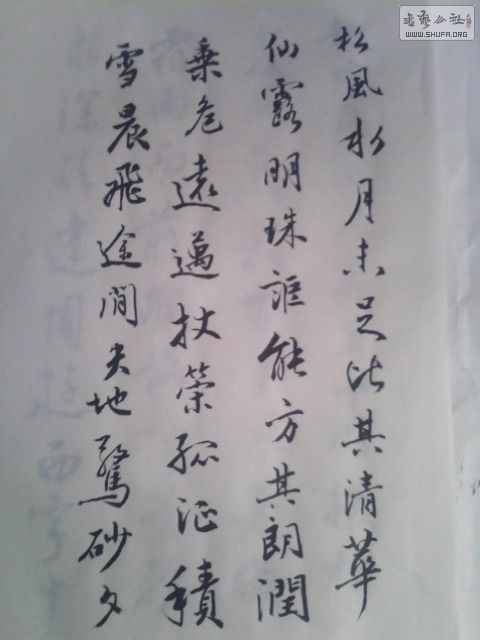 松風水月未足比其清華
仙露明珠詎能方其朗潤
乗危遠邁杖策孤征積
雪晨飛途間失地驚砂夕
書藝公社
WWW.SHUFA.ORG